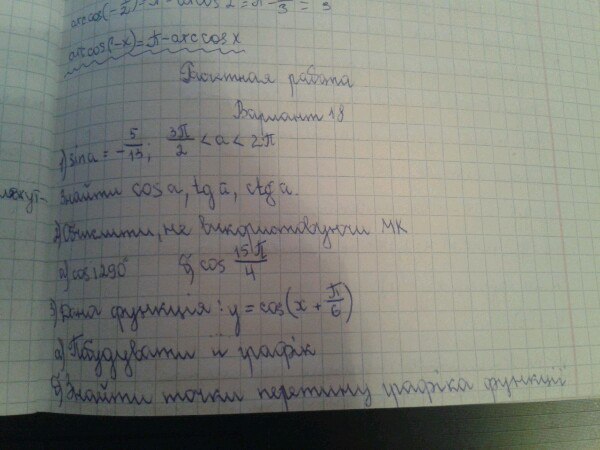 arccos(-1/2)=π-arccos 1/2=π-π/3=
arccos(-x)=π-arccosx
работа
Варіант 18
1) sin a = -5/13; 3π/2 < a < 2π
Знайти cos a, tg a, ctg a.
2) Обчислити, не використовуючи МК
а) cos1290° б) cos 15π/4
3) Дана функція: y = cos(x + π/6)
а) Побудувати її графік
б) Знайти точки перетину графіка функції